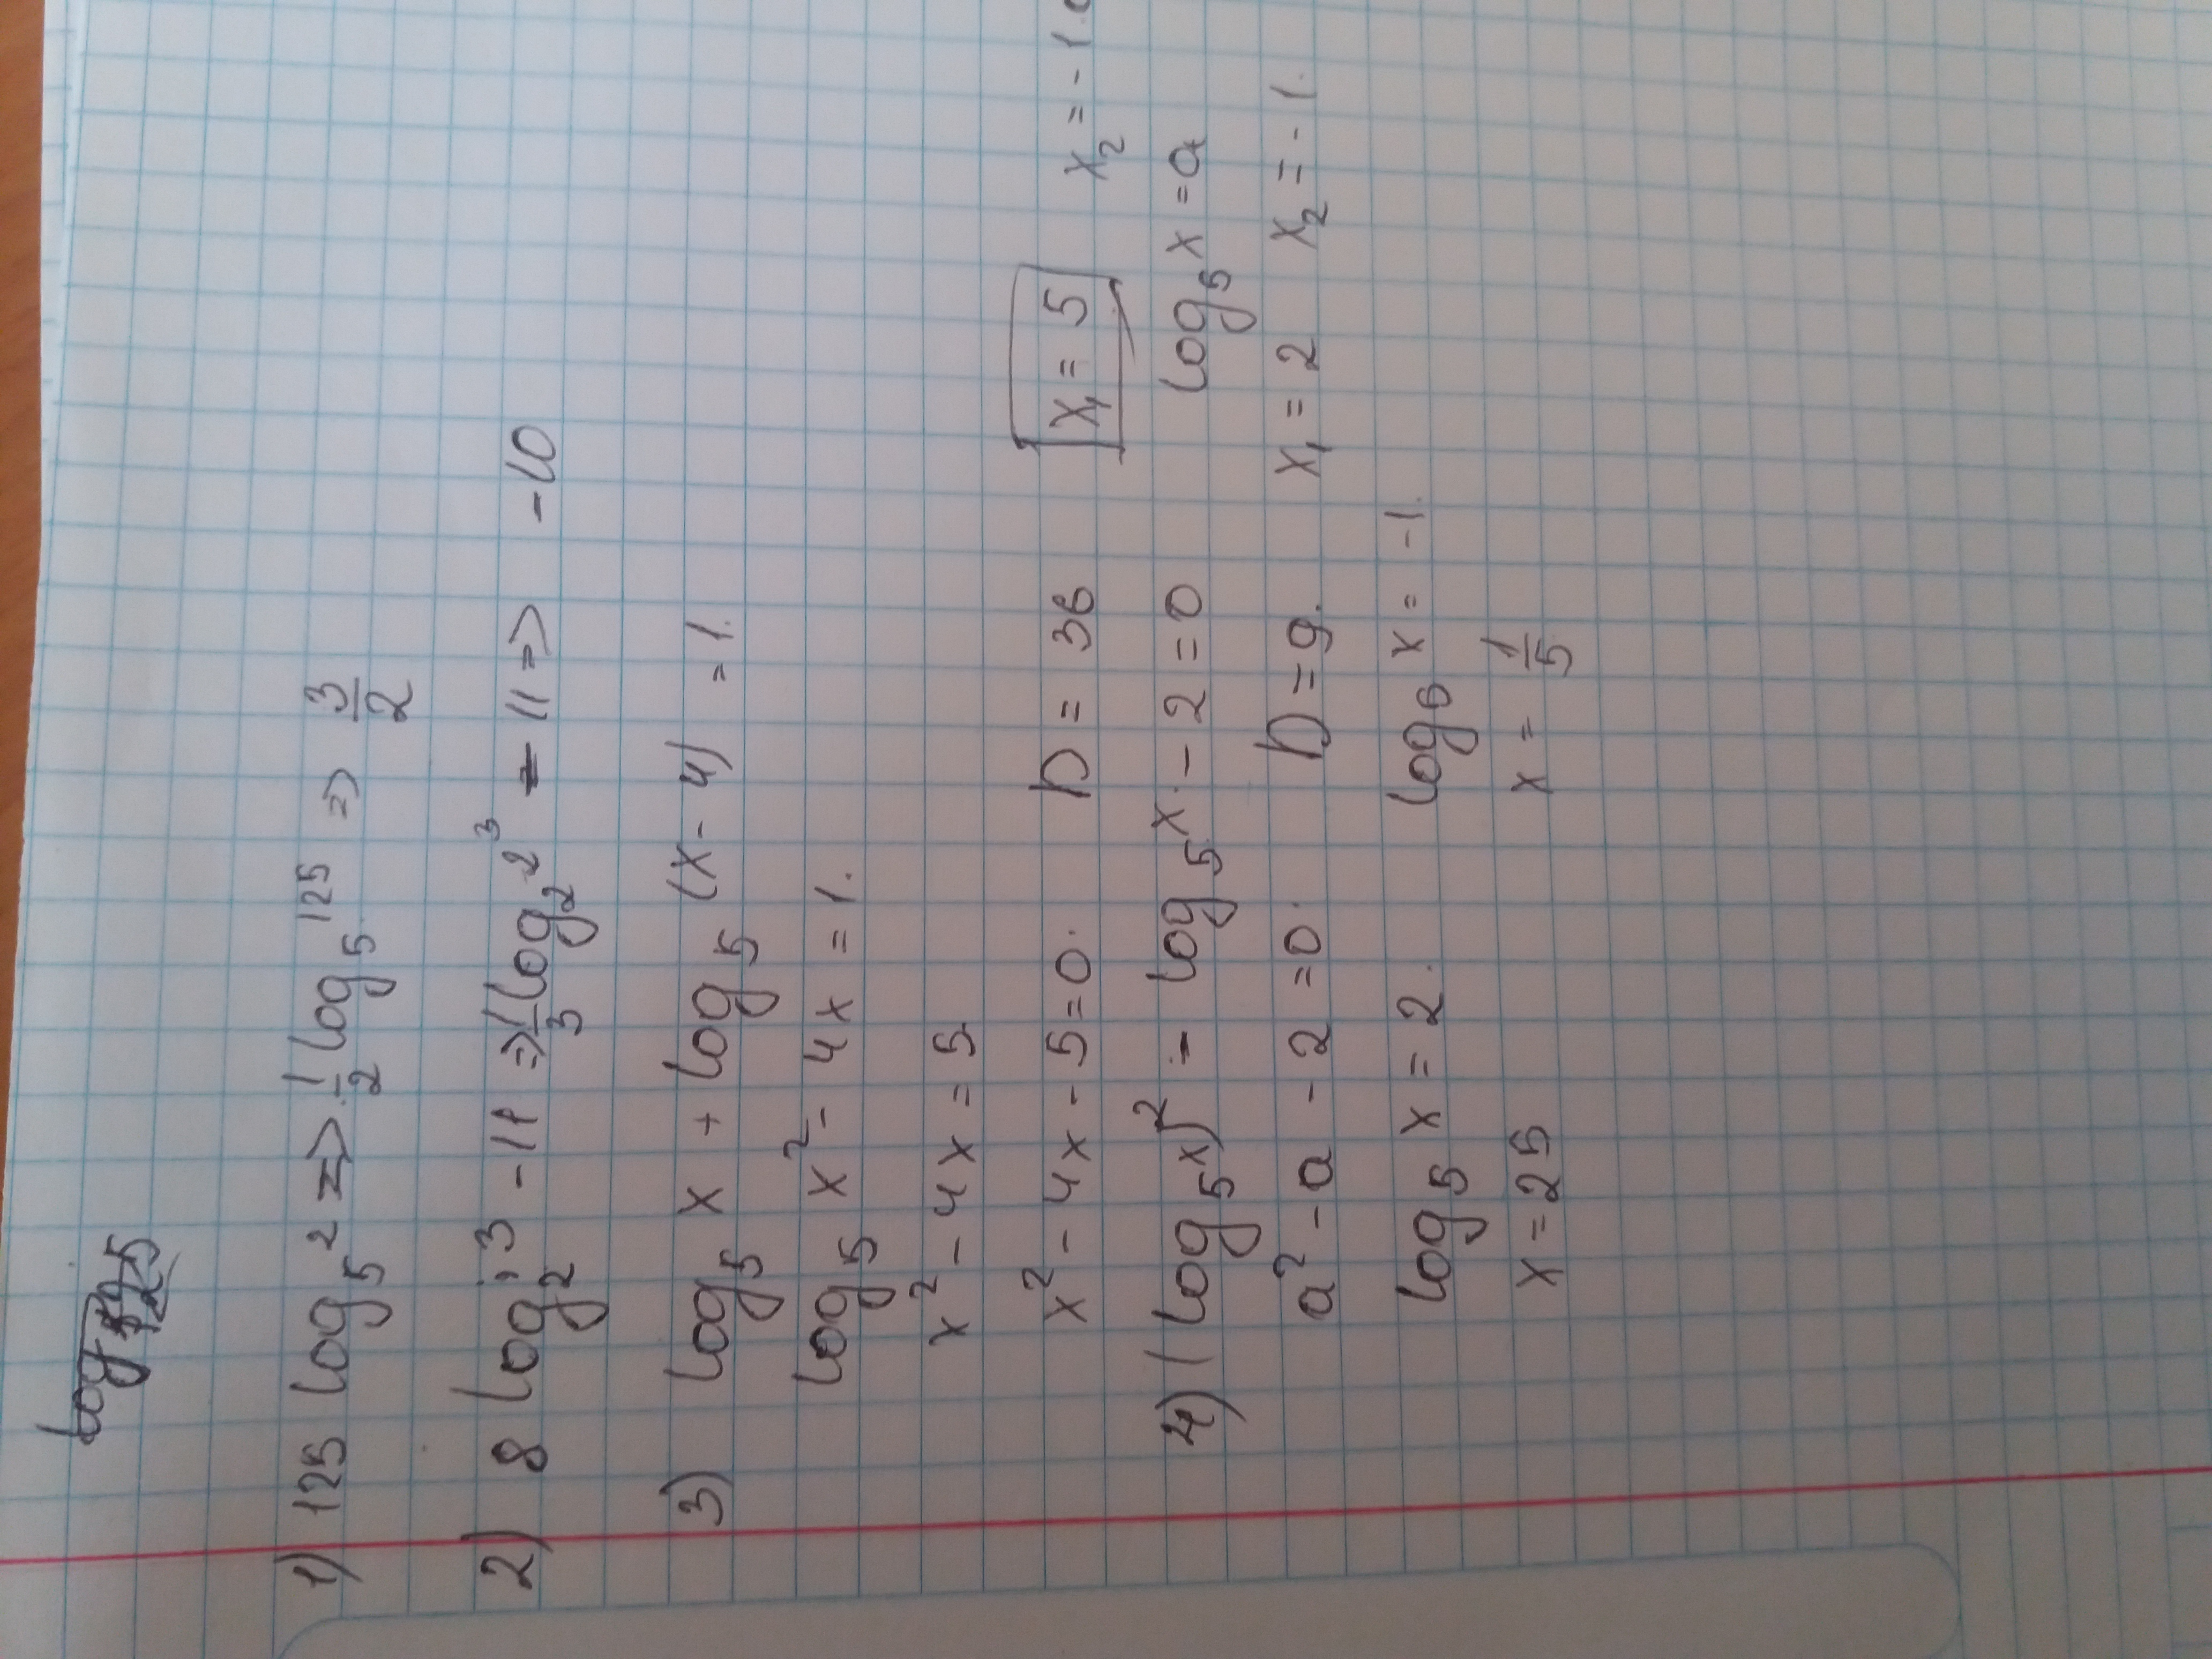 1) 125 log₅² => 1/2 log₅ 125 => 3/2
2) 8 log₂³ - 11 => 1/3 log₂ 2³ - 11 => -10
3) log₅ x + log₅ (x - 4) = 1.
log₅ x² - 4x = 1.
x² - 4x = 5
x² - 4x - 5 = 0. D = 36 x₁ = 5 x₂ = -1.
4) (log₅ x)² - log₅ x - 2 = 0 log₅ x = a
a² - a - 2 = 0. D = 9. x₁ = 2 x₂ = -1.
log₅ x = 2. log₅ x = -1.
x = 25 x = 1/5